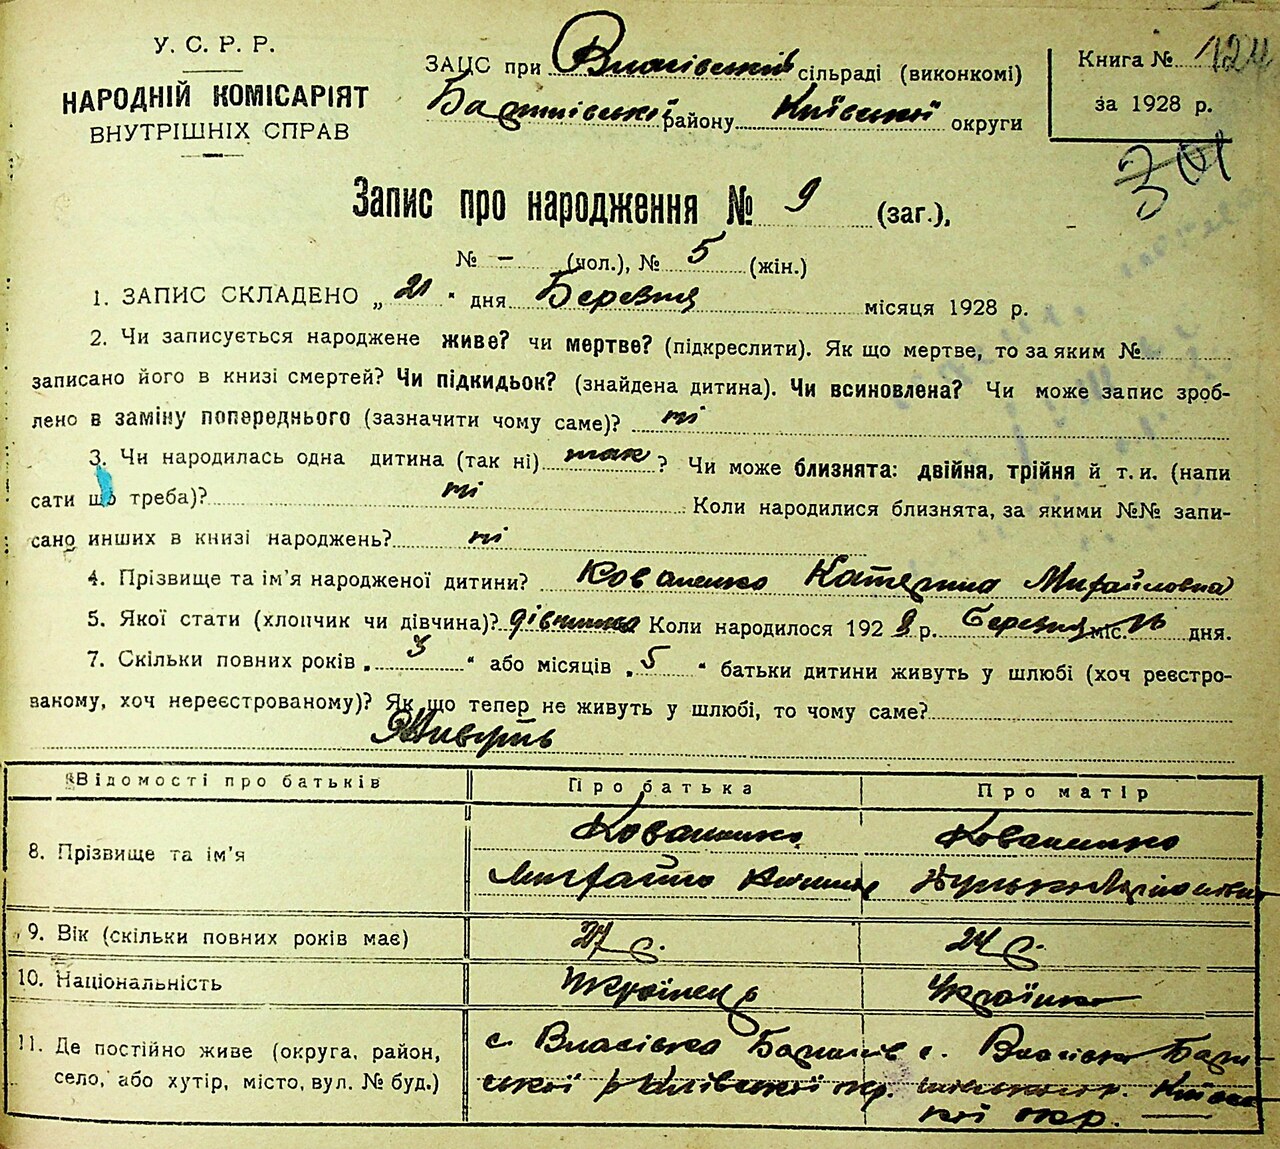 У. С. Р. Р.
НАРОДНІЙ КОМІСАРІЯТ
ВНУТРІШНІХ СПРАВ
ЗАЦС при Власівській сільраді (виконкомі)
району Київської округи
Книга № 124
за 1928 р.
Запис про народження № 9 (заг.),
№ – (чол.), № 5 (жін.)
1. ЗАПИС СКЛАДЕНО „ 21 “ дня Березня місяця 1928 р.
2. Чи записується народжене живе? чи мертве? (підкреслити). Як що мертве, то за яким №
записано його в книзі смертей? Чи підкидьок? (знайдена дитина). Чи всиновлена? Чи може запис зроб-
лено в заміну попереднього (зазначити чому саме)? ні
3. Чи народилась одна дитина (так ні) так ? Чи може близнята: двійня, трійня й т. и. (напи
сати що треба)? ні Коли народилися близнята, за якими №№ запи-
сано инших в книзі народжень? ні
4. Прізвище та ім'я народженої дитини? Коваленко Катерина Михайловна
5. Якої стати (хлопчик чи дівчина)? дівчина Коли народилося 192 8 р. Березня міс. дня.
7. Скільки повних років „ 3 “ або місяців „ 5 “ батьки дитини живуть у шлюбі (хоч реєстро-
ваному, хоч нереєстрованому)? Як що тепер не живуть у шлюбі, то чому саме?
Живуть
Відомості про батьків
Про батька
Про матір
8. Прізвище та ім'я
Коваленко
Михайло
Коваленко
9. Вік (скільки повних років має)
27 р.
24 р.
10. Національність
Українець
Українка
11. Де постійно живе (округа, район,
село, або хутір, місто, вул. № буд.)
с. Власівка
ської р Київської окр.
с. Власівка
р. Київсь
кої окр.